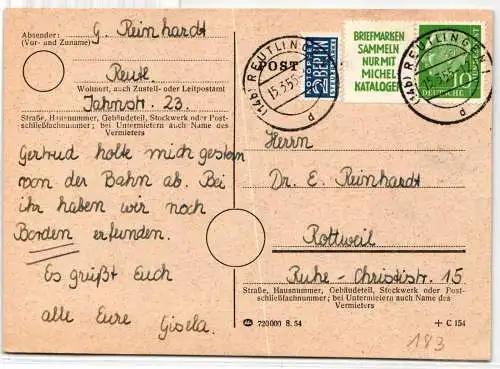 Absender: G. Reinhardt
(Vor- und Zuname)
Reutl.
Wohnort, auch Zustell- oder Leitpostamt
Jahnstr. 23.
Straße, Hausnummer, Gebäudeteil, Stockwerk oder Post-
schließfachnummer; bei Untermietern auch Name des
Vermieters
Gertrud holte mich gestern
von der Bahn ab. Bei
ihr haben wir noch
Borden erfunden.
Es grüßt Euch
alle Eure Gisela.
POST
NOTOPFER
2 BERLIN
STEUERMARKE
BRIEFMARKEN
SAMMELN
NUR MIT
MICHEL
KATALOGEN
10
DEUTSCHE
BUNDESPOST
(14b) REUTLINGEN 1
15.3.55
d
(14b) REUTLINGEN 1
15.3.55
d
Herrn
Dr. E. Reinhardt
Rottweil
Ruhe-Christistr. 15
Straße, Hausnummer, Gebäudeteil, Stockwerk oder Post-
schließfachnummer; bei Untermietern auch Name des
Vermieters
720000 8. 54
+ C 154
183